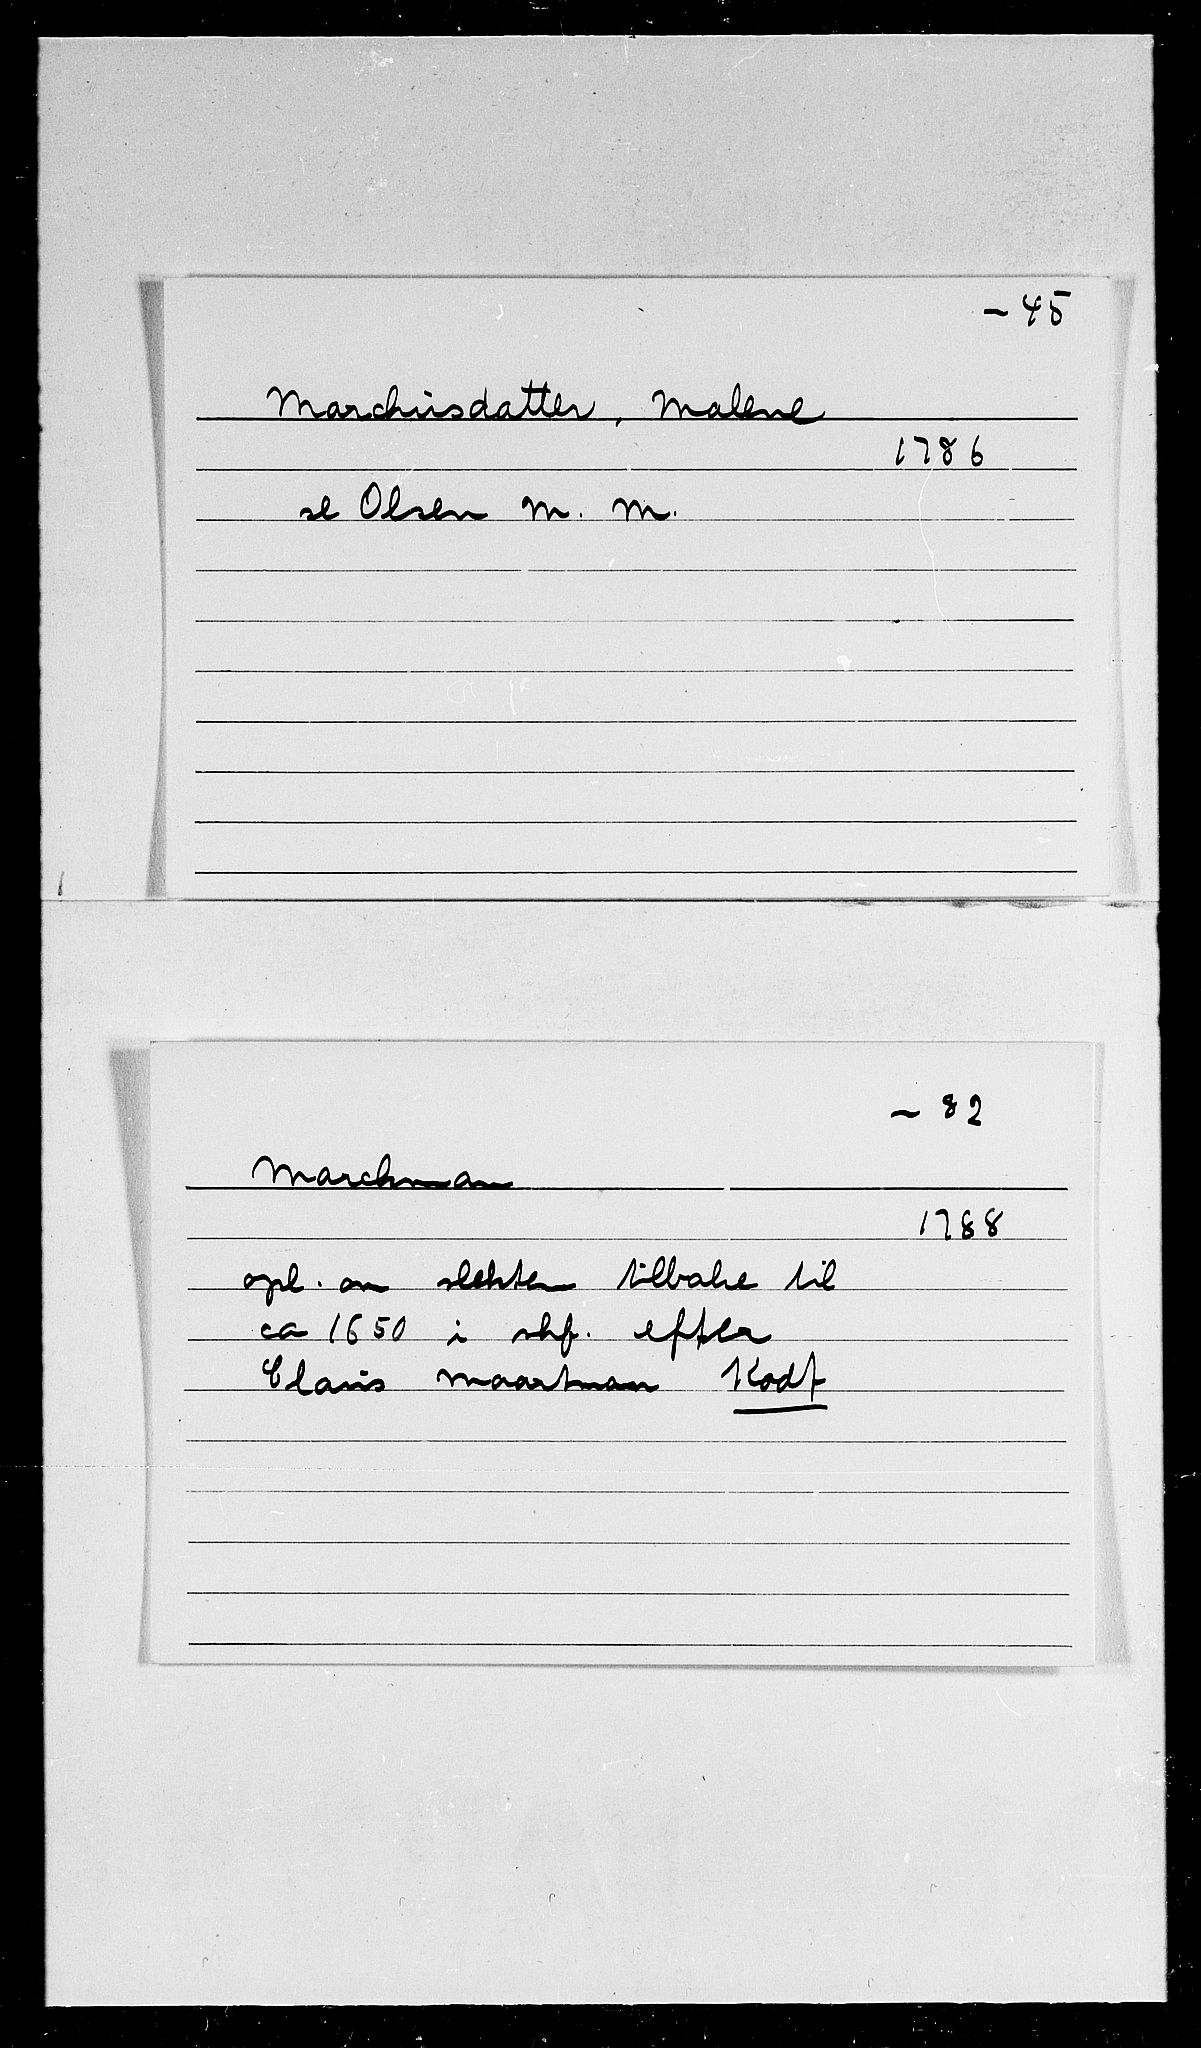 ~ 45
Marchusdatter, Malene
1786
se Olsen M. M.
~ 82
Marchman
1788
opl. om slekten tilbake til
ca 1650 i skf. efter
Claus Maartman Kodt